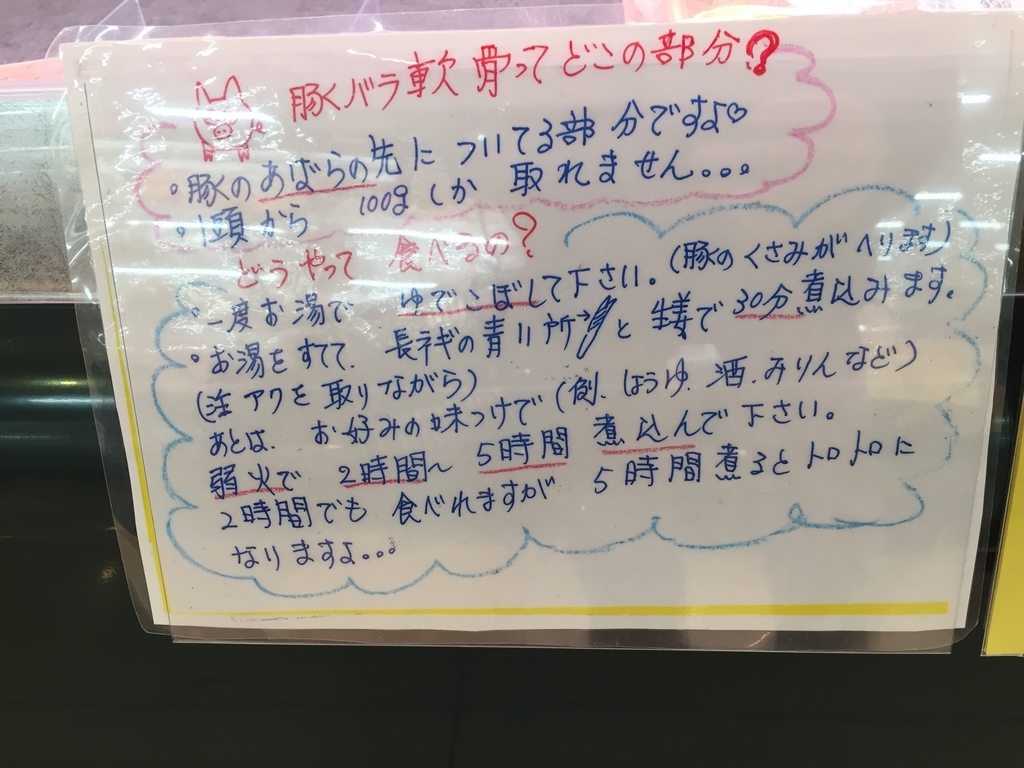 豚バラ軟骨ってどこの部分?
。豚のあばらの先についてる部分ですよ♡
。1頭から 100gしか 取れません。。。
どうやって 食べるの?
。一度お湯で ゆでこぼして下さい。(豚のくさみがへります)
。お湯をすてて、長ネギの青い所→と生姜で30分煮込みます。
(注 アクを取りながら)
あとは、お好みの味つけで(例、しょうゆ、酒、みりんなど)
弱火で 2時間〜 5時間 煮込んで下さい。
2時間でも 食べれますが 5時間煮るとトロトロに
なりますよ。。。